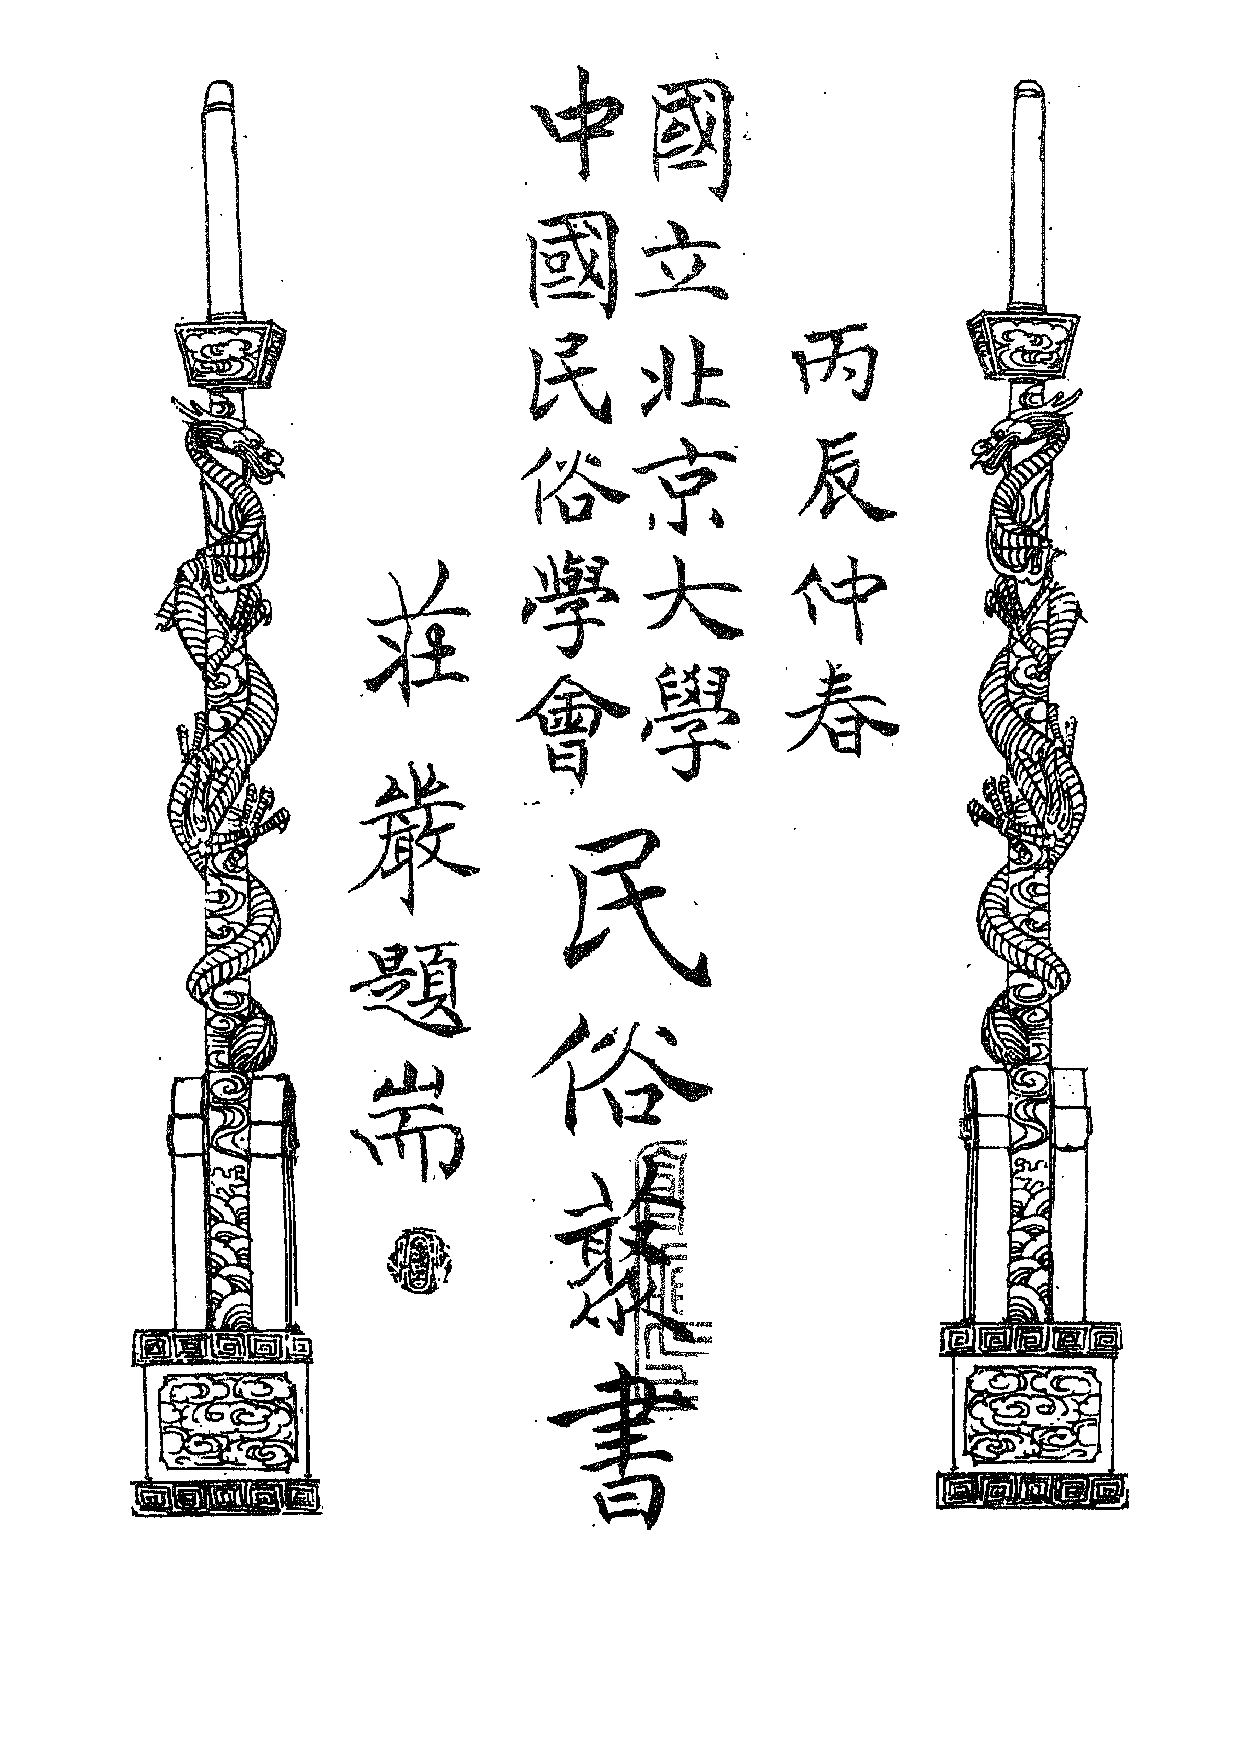 丙辰仲春
國立北京大學
中國民俗學會
民俗叢書
莊嚴題耑